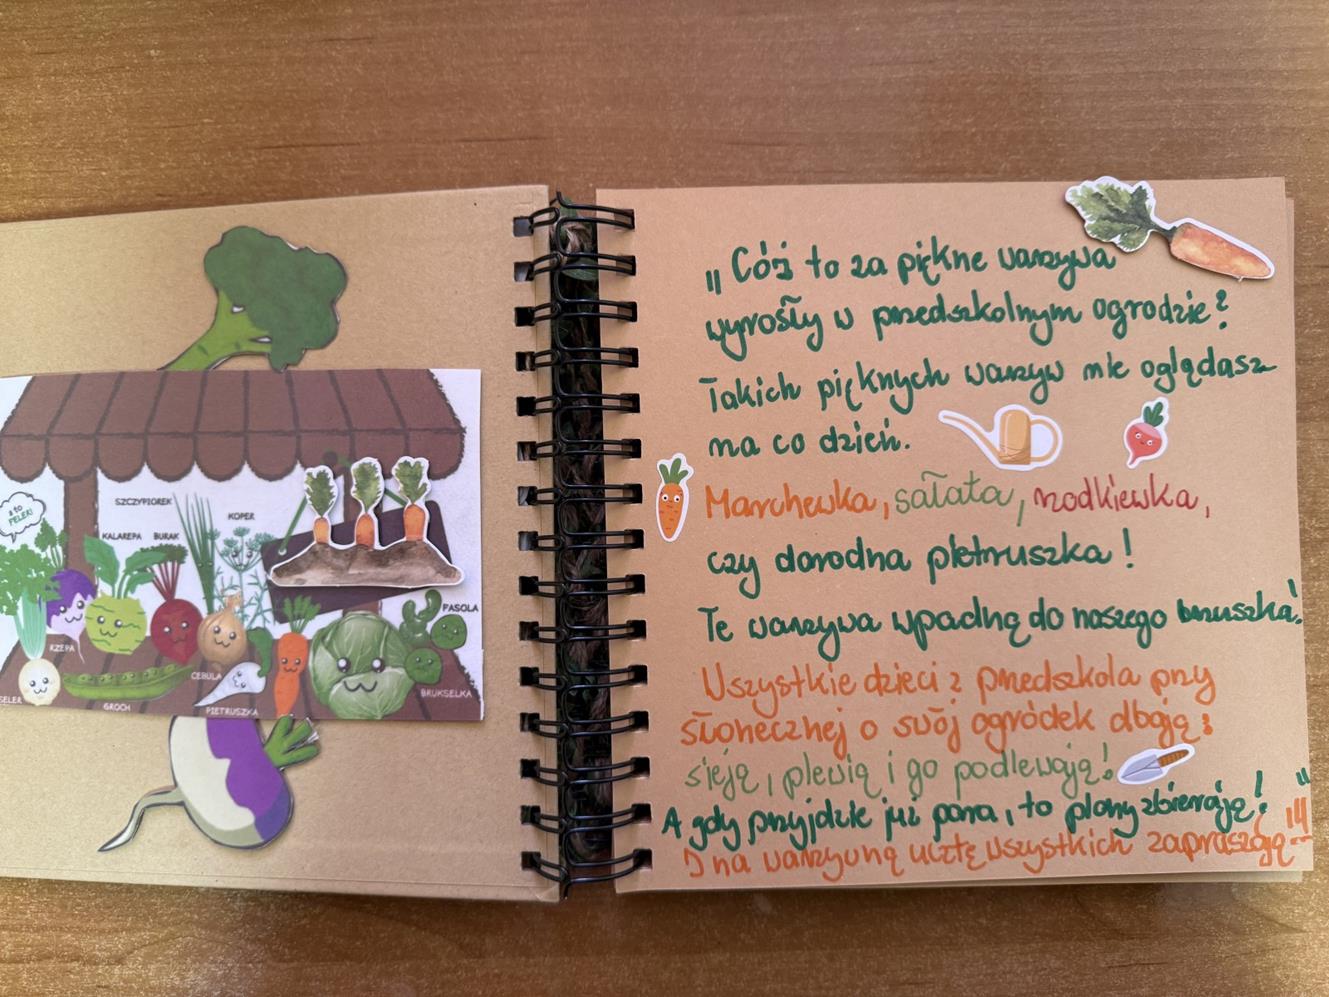 a to
FELEK!
SZCZYPIOREK
KOPER
KALAREPA
BURAK
FASOLA
RZEPA
CEBULA
BRUKSELKA
SELER
GROCH
PIETRUSZKA
„Cóż to za piękne warzywa
wyrosły w przedszkolnym ogrodzie?
Takich pięknych warzyw nie oglądasz
na co dzień.
Marchewka, sałata, rzodkiewka,
czy dorodna pietruszka!
Te warzywa wpadną do naszego brzuszka!
Wszystkie dzieci z przedszkola przy
słonecznej o swój ogródek dbają:
sieją, plewią i go podlewają!
A gdy przyjdzie już pora, to plony zbierają!"
I na warzywną ucztę wszystkich zapraszają!!!